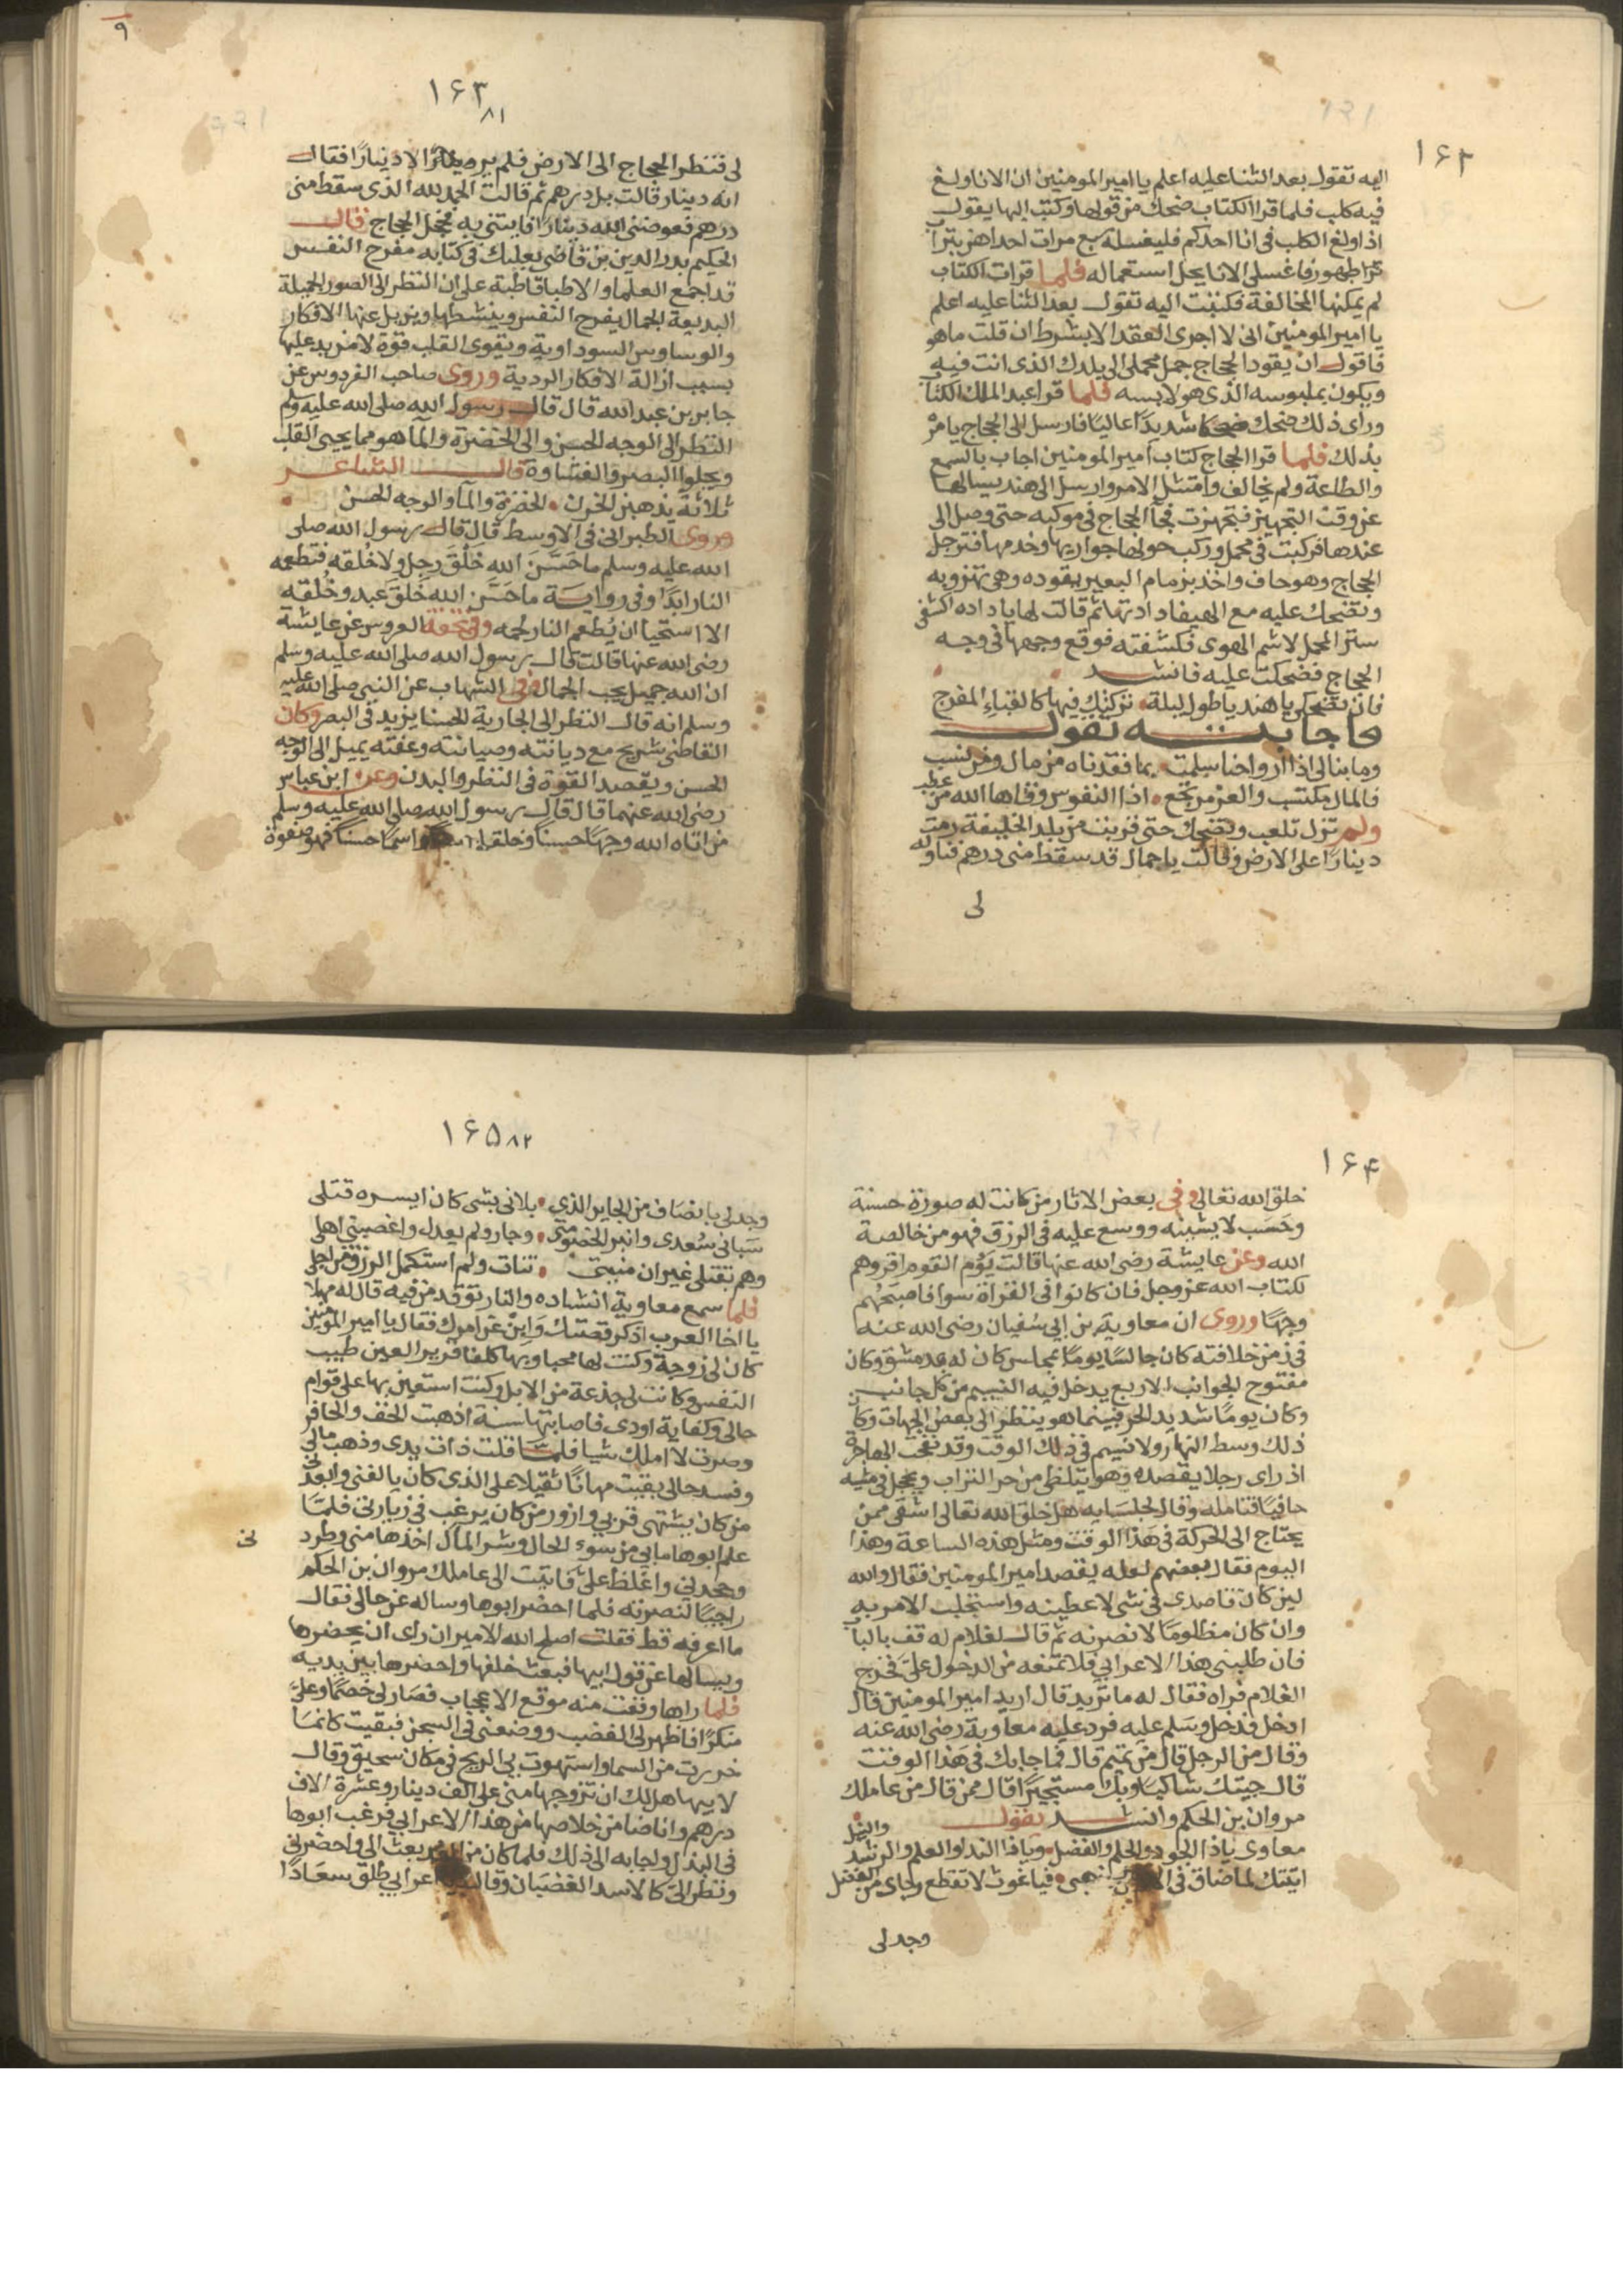 ١٦٢
اليه تقول بعد الثنا عليه اعلم يا امير المومنين ان الانا ولغ
فيه كلب فلما قرا الكتاب ضحك من قولها وكتب اليها يقول
اذا ولغ الكلب في انا احدكم فليغسله سبع مرات احداهن بتراب
فاغسلى الانا يحل استعماله فلما قرات الكتاب
لم يمكنها المخالفة فكتبت اليه تقول بعد الثنا عليه اعلم
يا امير المومنين انى لا اجرى العقد الا بشرط ان قلت ما هو
فاقول ان يقود الحجاج جمل محملى الى بلدك الذى انت فيه
ويكون بملبوسه الذى هو لابسه فلما قرا عبد الملك الكتاب
وراى ذلك ضحك ضحكا شديدا عاليا فارسل الى الحجاج يامره
بذلك فلما قرا الحجاج كتاب امير المومنين اجاب بالسمع
والطاعة ولم يخالف وامتثل الامر وارسل الى هند يسالها
عن وقت التجهيز فتجهزت فجا الحجاج فى موكبه حتى وصل الى
عندها فركبت فى محمل وركب حولها جواريها وخدمها فترجل
الحجاج وهو حاف واخذ بزمام البعير يقوده وهى تهزو به
وتضحك عليه مع الهيفا دادتها ثم قالت لها يا داده اكشفى
ستر المحمل لاشم الهوى فكشفته فوقع وجهها فى وجه
الحجاج فضحكت عليه فانشد
فان تضحكى يا هند يا طول ليلة تركتك فيها كالقباء المفرج
فاجابته تقول
وما بنالى اذا ارواحنا سلمت بما فقدناه من مال ومن نسب
فالمال مكتسب والعز مرتجع اذا النفوس وقاها الله من عطب
ولم تزل تلعب وتضحك حتى قربت من بلد الخليفة رمت
دينارا على الارض وقالت يا جمال قد سقط منى درهم فناوله
لى
٩
١٦٣
٨١
لى فنظر الحجاج الى الارض فلم ير الا دينارا فقال
انه دينار قالت بل درهم ثم قالت الحمد لله الذى سقط منى
درهم فعوضنى الله دينارا فايتنى به فخجل الحجاج قال
الحكيم بدر الدين بن قاضى بعلبك فى كتابه مفرح النفس
قد اجمع العلما والاطبا قاطبة على ان النظر الى الصور الجميلة
البديعة الجمال يفرح النفس وينشطها ويزيل عنها الافكار
والوساوس السوداوية ويقوى القلب قوة لا مزيد عليها
بسبب ازالة الافكار الردية وروى صاحب الفردوس عن
جابر بن عبد الله قال قال رسول الله صلى الله عليه وسلم
النظر الى الوجه الحسن والى الخضرة والما هو مما يحيى القلب
ويجلوا البصر والغشاوة قال الشاعر
ثلاثة يذهبن الحزن الخضرة والما والوجه الحسن
وروى الطبرانى فى الاوسط قال قال رسول الله صلى
الله عليه وسلم ما حَسَّنَ الله خَلْقَ رجل ولا خُلقه فتطعمه
النار ابدا وفى رواية ما حَسَّن الله خَلق عبد وخُلقه
الا استحيا ان يُطعم النار لحمه وفى تحفة العروس عن عايشة
رضى الله عنها قالت قال رسول الله صلى الله عليه وسلم
ان الله جميل يحب الجمال وفى الشهاب عن النبى صلى الله عليه
وسلم انه قال النظر الى الجارية الحسنا يزيد فى البصر وكان
القاضى شريح مع ديانته وصيانته وعفته يميل الى الوجه
الحسن ويقصد القوة فى النظر والبدن وعن ابن عباس
رضى الله عنهما قال قال رسول الله صلى الله عليه وسلم
من اتاه الله وجها حسنا وخلقا واسما حسنا فهو صفوة
١٦٤
خلق الله تعالى وفى بعض الاثار من كانت له صورة حسنة
وحَسَب لا يشينه ووسع عليه فى الرزق فهو من خالصة
الله وعن عايشة رضى الله عنها قالت يؤم القوم اقروهم
لكتاب الله عز وجل فان كانوا فى القراة سوا فاصبحهم
وجها وروى ان معاوية بن ابى سُفيان رضى الله عنه
فى زمن خلافته كان جالسا يوما بمجلس كان له بدمشق وكان
مفتوح الجوانب الاربع يدخل فيه النسيم من كل جانب
وكان يوما شديد الحر فبينما هو ينظر الى بعض الجهات وكان
ذلك وسط النهار ولا نسيم فى ذلك الوقت وقد نفخت الهاجرة
اذ راى رجلا يقصده وهو يتلظى من حر التراب ويحجل فى مشيه
حافيا فتامله وقال لجلسايه هل خلق الله تعالى اشقى ممن
يحتاج الى الحركة فى هذا الوقت ومثل هذه الساعة وهذا
اليوم فقال بعضهم لعله يقصد امير المومنين فقال والله
لين كان قاصدى فى شى لاعطينه واستجلب الامر به
وان كان مظلوما لانصرنه ثم قال لغلام له قف بالباب
فان طلبنى هذا الاعرابى فلا تمنعه من الدخول علىّ فخرج
الغلام فراه فقال له ما تريد قال اريد امير المومنين قال
ادخل فدخل وسَلم عليه فرد عليه معاوية رضى الله عنه
وقال من الرجل قال من تميم قال فما جا بك فى هذا الوقت
قال جيتك شاكيا وبك مستجيرا قال ممن قال من عاملك
مروان بن الحكم وانشد يقول
معاوى ياذا الجود والحلم والفضل وياذا الندا والعلم والرشد والنبل
اتيتك لما ضاق فى فيا غوث لا تقطع رجاى من
وجد لى
١٦٥
٨٢
وجد لى بانصاف من الجاير الذي بلانى بشى كان ايسره قتلى
سَبانى سُعدى وانبرا لخصومتى وجار ولم يعدل واغصبنى اهلى
وهم بقتلى غير ان منيتى تنات ولم استكمل الرزق من اجلى
فلما سمع معاوية انشاده والنار توقد من فيه قال له مهلا
يا اخا العرب اذكر قصتك وَابِنْ عن امرك فقال يا امير المومنين
كان لى زوجة وكنت لها محبا وبها كلفا قرير العين طيب
النفس وكانت لى جذعة من الابل وكنت استعين بها على قوام
حالى وكفاية اودى فاصابتها سنة اذهبت الخف والحافر
وصرت لا املك شيا فلما قلت ذات يدى وذهب مالى
وفسد حالى بقيت مهانا ثقيلا على الذى كان يالفنى وابعدنى
من كان يشتهى قربي وازور من كان يرغب فى زيارتى فلما
علم ابوها ما بى من سوء الحال وشر المآل اخذها منى وطرد
نى
وجحدنى واغلظ علىّ فاتيت الى عاملك مروان بن الحكم
راجيا لنصرته فلما احضر ابوها وساله عن حالى فقال
ما اعرفه قط فقلت اصلح الله الامير ان راى ان يحضرها
ويسالها عن قول ابيها فبعث خلفها واحضرها بين يديه
فلما راها وقعت منه موقع الاعجاب فصار لى خصما وعلىّ
منكرا فاظهر لى الغضب ووضعنى فى السجن فبقيت كانما
خررت من السما واستهوت بى الريح فى مكان سحيق وقال
لابيها هل لك ان تزوجها منى على الف دينار وعشرة الاف
درهم وانا ضامن خلاصها من هذا الاعرابى فرغب ابوها
فى البذل واجابه الى ذلك فلما كان من بعث الى واحضرنى
ونظر الىّ كالاسد الغضبان وقال اعرابى طلق سعادا